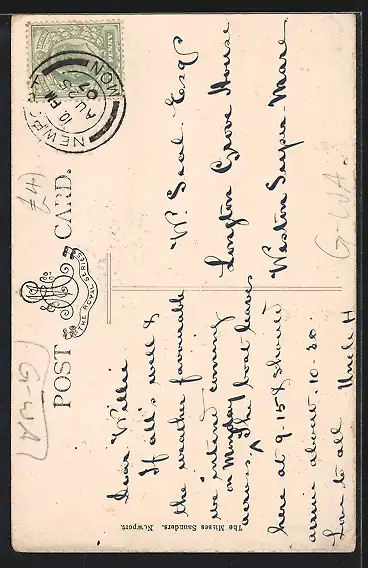 POST CARD.
THE ROYAL SERIES
NEWPORT MON
10 PM
AU 25
07
£4
G-WA
G-WA
Dear Willie
If all's well &
the weather favourable
we intend coming
on Monday
across ^ The boat leaves
here at 9-15 & should
arrive about 10-20.
Love to all Uncle H
W. Seal Esqr
Longton Grove House
Weston Super-Mare
The Misses Saunders. Newport.